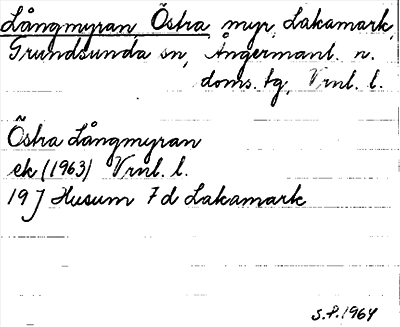 Långmyran Östra myr, Lakamark,
Grundsunda sn, Ångermanl. n.
doms. tg, Vrnl. l.
Östra Långmyran
ek (1963) Vrnl. l.
19 J Husum 7 d Lakamark
S.P. 1964